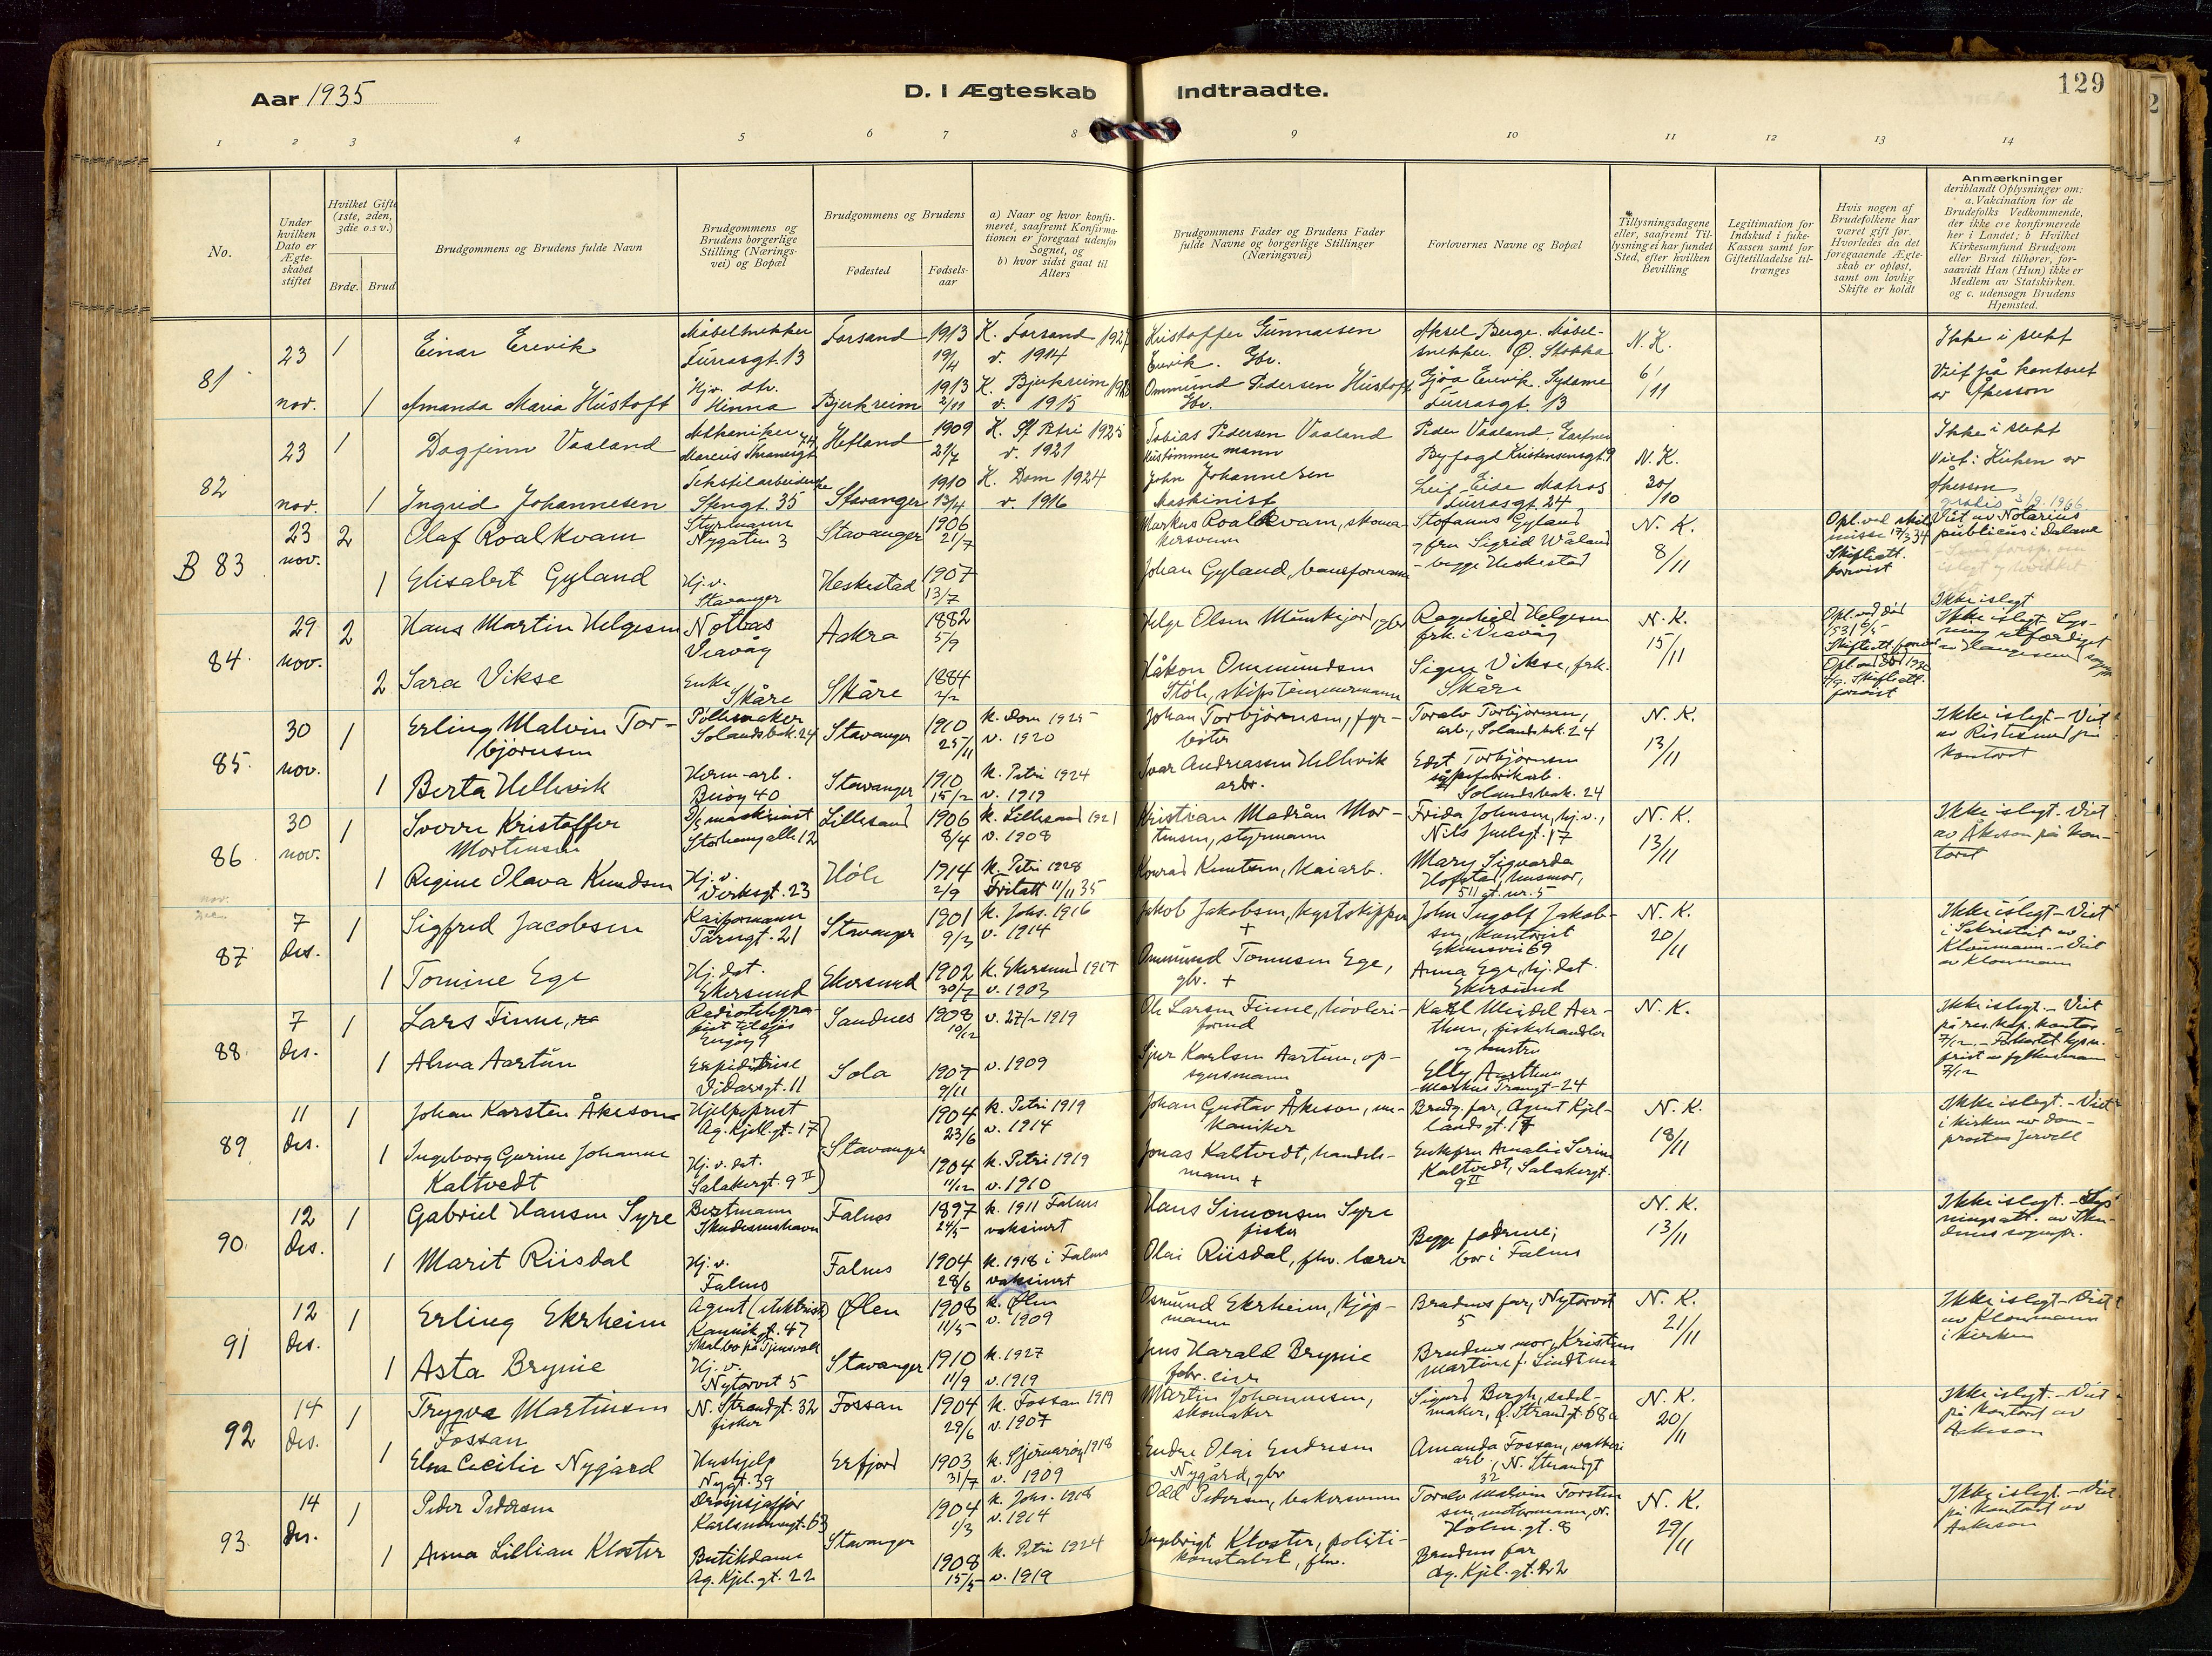 Aar 1935
D. I Ægteskab Indtraadte.
129
1 2 3 4 5 6 7 8 9 10 11 12 13 14
No.
Under hvilken Dato er Ægteskabet stiftet
Hvilket Gifte (1ste, 2den, 3die o.s v.)
Brdg. Brud
Brudgommens og Brudens fulde Navn
Brudgommens og Brudens borgerlige Stilling (Næringsvei) og Bopæl
Brudgommens og Brudens
Fødested
Fødselsaar
a) Naar og hvor konfirmeret, saafremt Konfirmationen er foregaat udenfor Sognet, og
b) hvor sidst gaat til Alters
Brudgommens Fader og Brudens Fader fulde Navne og borgerlige Stillinger (Næringsvei)
Forlovernes Navne og Bopæl
Tillysningsdagene eller, saafremt Tillysning ei har fundet Sted, efter hvilken Bevilling
Legitimation for Indskud i fuke-Kassen samt for Giftetilladelse tiltrænges
Hvis nogen af Brudefolkene har været gift før. Hvorledes da det foregaaende Ægteskab er opløst, samt om lovlig Skifte er holdt
Anmærkninger
deriblandt Oplysninger om: a. Vakcination for de Brudefolks Vedkommende, der ikke ere konfirmerede her i Landet; b Hvilket Kirkesamfund Brudgom eller Brud tilhører, forsaavidt Han (Hun) ikke er Medlem av Statskirken. og c. udensogn Brudens Hjemsted.
81 23 nov.
1 Einar Erevik Møbelsnekker Furrasgt. 13 Forsand 1913 19/4 K. Forsand v. 1914
Kristoffer Gunnarsen Erevik. Gbr. Aksel Berge. Møbelsnekker. Ø. Stokka N. K. 6/11 Ikke i slekt
1 Amanda Maria Hustoft Hjv. dtr. Hinna Bjerkreim 1913 2/11 K. Bjerkreim v. 1915
Ommund Pedersen Hustoft Gbr. Gjøa Erevik. Sydame Furrasgt. 13 Viet på kontoret av Åkesson
82 23 nov.
1 Dagfinn Vaaland Mekaniker Marcus Thranesgt. Hetland 1909 21/7 K. St. Petri 1925 v. 1921
Tobias Pedersen Vaaland Hustimmermann Peder Vaaland. Gartner Byfogd Kristensensgt. 9 N. K. 30/10 Ikke i slekt
1 Ingrid Johannesen Tekstilarbeiderske Stengt. 35 Stavanger 1910 13/4 K. Dom 1924 v. 1916
John Johannesen Maskinist Leif Eide Matros Furrasgt. 24 Viet: Kirken av Åkesson
gratis 3/9. 1966
B 83 23 nov.
2 Olaf Roalkvam Styrmann Nygaten 3 Stavanger 1906 21/7
Markus Roalkvam, skomakersvenn Stefanus Gyland og fru Sigrid Wåland N. K. 8/11 Opl. ved skilsmisse 17/3 34 Skifteatt. forevist Viet av Notarius publicus i Dalane
1 Elisabet Gyland Hj. v. Stavanger Heskestad 1907 13/7
Johan Gyland, baneformann - begge Heskestad
Ikke i slegt
84 29 nov.
2 Hans Martin Helgesen Notbas Veavåg Aakra 1882 5/9
Helge Olsen Munkejord, gbr Ragnhild Helgesen frk. i Veavåg N. K. 15/11 Opl. ved død 1931 6/5 Ikke i slegt. Lysning utferdiget av Haugesund sognepr.
2 Sara Vikse Enke Skåre Skåre 1884 2/2
Håkon Ommundsen Støle, skipstømmermann Signe Vikse, frk. Skåre
85 30 nov.
1 Erling Malvin Torbjørnsen Pølsemaker Solandsbak. 24 Stavanger 1910 25/11 k. Dom 1925 v. 1920
Johan Torbjørnsen, fyrbøter Toralv Torbjørnsen, arb., Solandsbk. 24 N. K. 13/11 Ikke i slegt - Viet av Ristesund på kontoret
1 Berta Hellevik Herm-arb. Buøy 40 Stavanger 1910 15/2 k. Petri 1924 v. 1919
Ivar Andreassen Hellevik arbr. Edit Torbjørnsen såpefabrikarb. Solandsbak. 24
86 30 nov.
1 Sverre Kristoffer Mortensen D/S maskinist Storhaugalle 12 Lillesand 1906 8/4 k. Lillesand 1921 v. 1908
Kristian Madrån Mortensen, styrmann Frida Johnsen, hj. v., Nils Juelsgt. 17 N. K. 13/11 Ikke i slegt. Viet av Åkeson på kontoret
1 Regine Olava Knudsen Hj. v. Verksgt. 23 Høle 1914 2/9 k. Petri 1928 Fritatt 11/11 35
Konrad Knutsen, Kaiarb. Mary Sigvarda Hofstad, husmor, 511 gt. nr. 5
87 7 des.
1 Sigfred Jacobsen Kaiformann Tårngt. 21 Stavanger 1901 9/3 k. Johs. 1916 v. 1914
Jakob Jakobsen, kystskipper + John Ingolf Jakobsen, kontorist N. K. 20/11 Ikke i slegt - Viet i Sakristiet av Klonmann - Viet av Klonmann
1 Tomine Ege Hj. dat. Ekersund Ekersund 1902 30/7 k. Ekersund 1917 v. 1903
Ommund Tonnesen Ege, gbr. + Anna Ege, hj. dat. Ekersund
88 7 des.
1 Lars Finne Radiotelegrafist tilsjøs Engøy 9 Sandnes 1908 10/12 v. 27/2 1919
Ole Larsen Finne, høvleriformd Karl Meidel Aarthun, fiskehandler og hustru N. K. Ikke i slegt - Viet på res. kap. kontor 7/12
1 Alma Aartun Expeditrise Vidarsgt. 11 Sola 1907 9/11 v. 1909
Sjur Karlsen Aartun, opsynsmann Elly Aarthun - Markus Tranegt - 24
89 11 des.
1 Johan Karsten Åkeson Hjelpeprest Ag. Kjell. gt. 17 Stavanger 1904 23/6 k. Petri 1919 v. 1914
Johan Gustav Åkeson, mekaniker Brudg. far, Agent Kjellandsgt. 17 N. K. 18/11 Ikke i slegt - Viet i kirken av domprosten Jervell
1 Ingeborg Gurine Johanne Kaltvedt Hj. v. dat. Salakergt. 9 II 1904 11/12 k. Petri 1919 v. 1910
Jonas Kaltvedt, handelsmann + Enkefru Amalie Serine Kaltvedt, Salakergt. 9 II
90. 12 des.
1 Gabriel Hansen Syre Bestmann Skudesneshavn Falnes 1897 24/5 k. 1911 Falnes vaksinert
Hans Simonsen Syre fisker Begge fedrene; bor i Falnes N. K. 13/11 Ikke i slegt. - Lysningsatt. av Skudenes sognepr.
1 Marit Riisdal Hj. v. Falnes Falnes 1904 28/6 k. 1918 i Falnes vaksinert
Olai Riisdal, fhv. lærer
91 12 des.
1 Erling Ekrheim Agent (elektrisk) Kannik gt. 47 Skal bo på Tjensvoll Ølen 1908 11/5 k. Ølen v. 1909
Osmund Ekrheim, kjøpmann Brudens far, Nytorvet 5 N. K. 21/11 Ikke i slegt - Viet av Klonmann i kirken
1 Asta Brynie Hj. v. Nytorvet 5 Stavanger 1910 11/9 k. 1927 v. 1919
Jens Harald Brynie fabr. eier Brudens mor, Kristine Martine f. Lindtner
92 14 des.
1 Trygve Martinsen Fossan N. Strandgt. 32 fisker Fossan 1904 29/6 k. Fossan 1919 v. 1907
Martin Johannesen, skomaker Sigurd Bergh, sadelmaker, Ø. Strandgt. 68a N. K. 20/11 Ikke i slegt. - Viet på kontoret av Aakeson
1 Elna Cecilie Nygård Hushjelp Nygt. 39 Erfjord 1903 31/7 k. Sjernarøy 1918 v. 1909
Endre Olai Endresen Nygård, gbr Amanda Fossan, vaskeri arb, N. Strandgt 32
93. 14 des.
1 Peder Pedersen Drosjesjaffør Karlsminnegt. 63 Stavanger 1904 1/3 k. Johs. 1918 v. 1914
Odd Pedersen, bakersvenn Toralv Malvin Torstensen, motormann, N. Holm. gt. 8 N. K. 29/11 Ikke i slegt. - Viet på kontoret av Aakeson
1 Anna Lillian Kloster Butikdame Ag. Kjel. gt. 22 1908 15/5 k. Petri 1924 v. 1919
Ingebrigt Kloster, politikonstabel, fhv. Brudens far Ag. Kjel. gt. 22